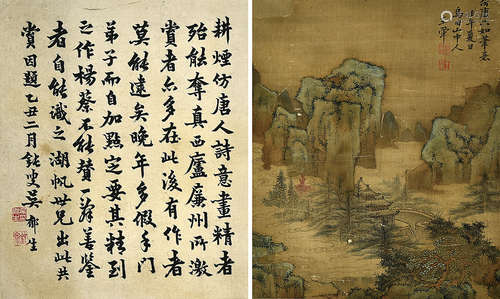 耕煙仿唐人詩意畫精者
殆能奪真西廬廉州所激
賞者亦多在此後有作者
莫能遠矣晚年多假手門
弟子而自加點定要其精到
之作楊蔡不能贊一辭善鑒
者自能識之湖帆世兄出此共
賞因題乙丑二月鈍叟吳郁生
筆意
夏日
烏目山中人
王翬